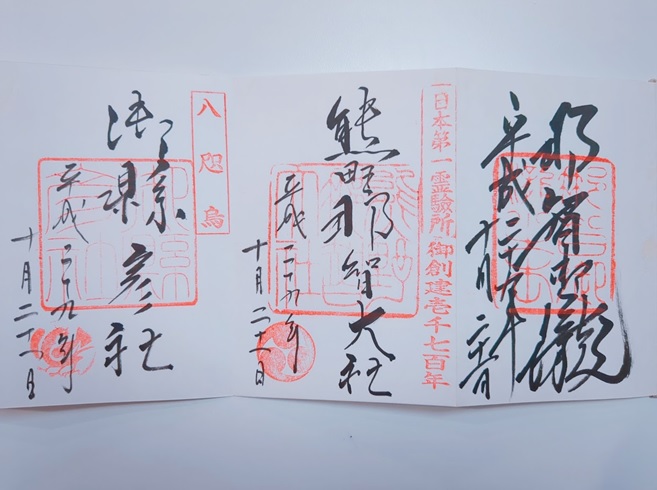 那智御瀧
平成二十九年
日本第一霊験所 御創建壱千七百年
熊野那智大社
平成二十九年
十月二十一日
八咫烏
御縣彦社
平成二十九年
十月二十一日